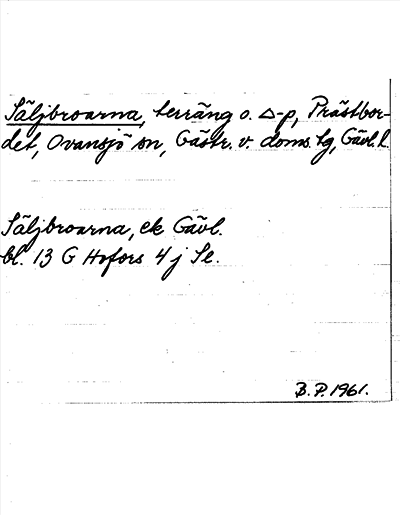 Säljbroarna, terräng o. △-p, Prästbor-
det, Ovansjö sn, Gästr. v. doms. tg, Gävl. l.
Säljbroarna, ek Gävl.
bl. 13 G Hofors 4 j Se.
B. P. 1961.